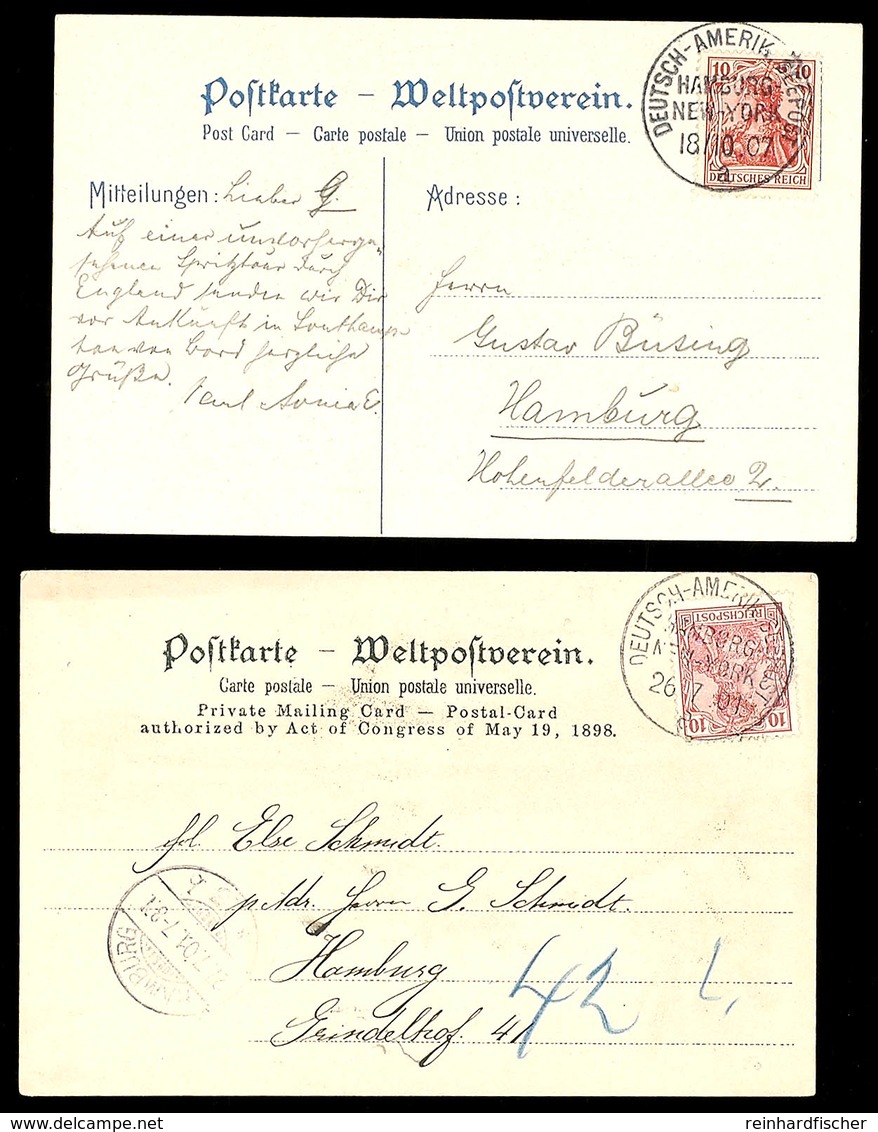 Postkarte – Weltpostverein.
Post Card – Carte postale – Union postale universelle.
DEUTSCH-AMERIK. SEEPOST
HAMBURG-
NEW-YORK
18/10 07
a
10 10
DEUTSCHES REICH
Mitteilungen: Lieber G.
Auf einer unvorherge-
sehenen Spritztour durch
England senden wir Dir
vor Ankunft in Southamp-
ton von Bord herzliche
Grüße.
Karl
Adresse:
Herrn
Gustav Büsing
Hamburg
Hohenfelderallee 2.
Postkarte – Weltpostverein.
Carte postale – Union postale universelle.
Private Mailing Card – Postal-Card
authorized by Act of Congress of May 19, 1898.
DEUTSCH-AMERIK. SEEPOST
HAMBURG-
NEW-YORK
26 7 01
REICHSPOST
10 10
Frl. Else Schmidt.
p. Adr. Herrn G. Schmidt.
Hamburg
Grindelhof. 41
42
HAMBURG
7-8
reinhardfischer